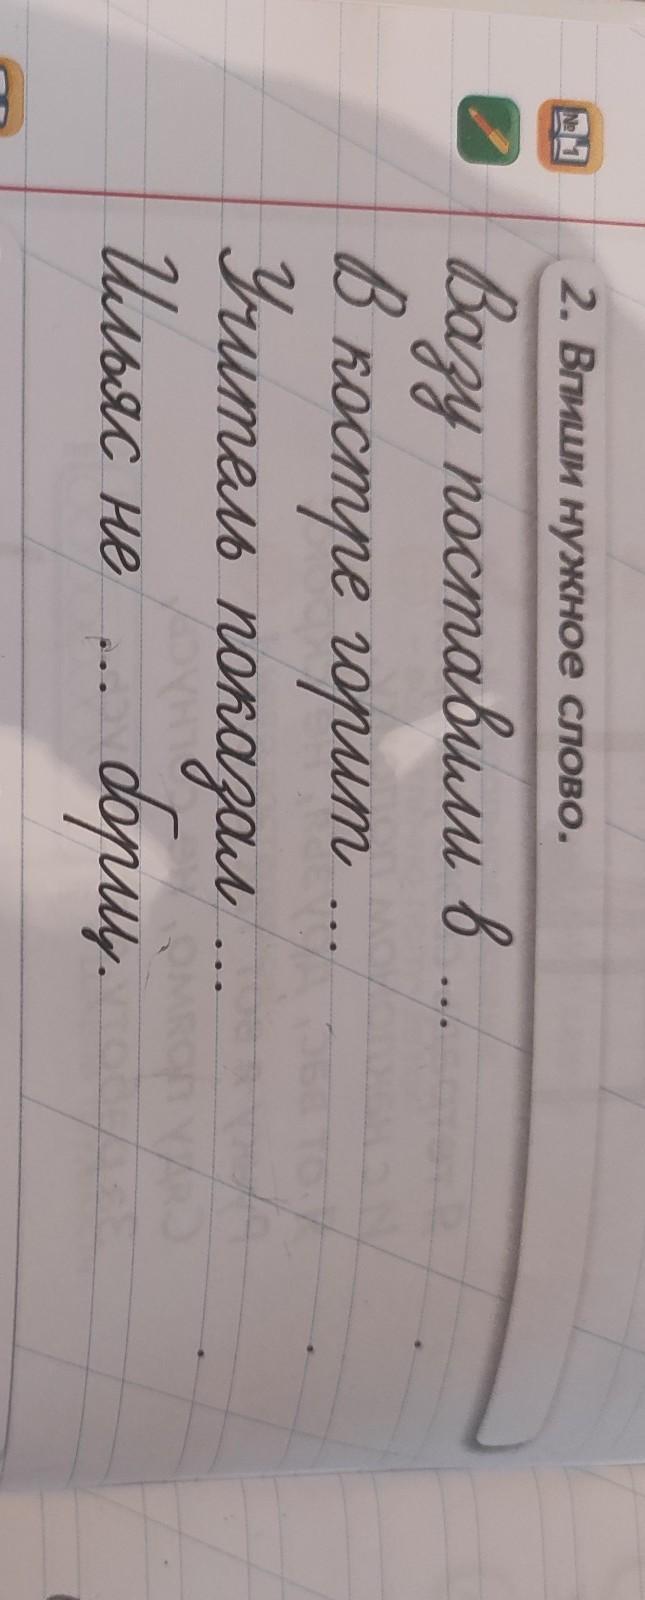 № 1
2. Впиши нужное слово.
Вазу поставили в ... .
В костре горит ... .
Учитель показал ... .
Ильяс не ... борщ.